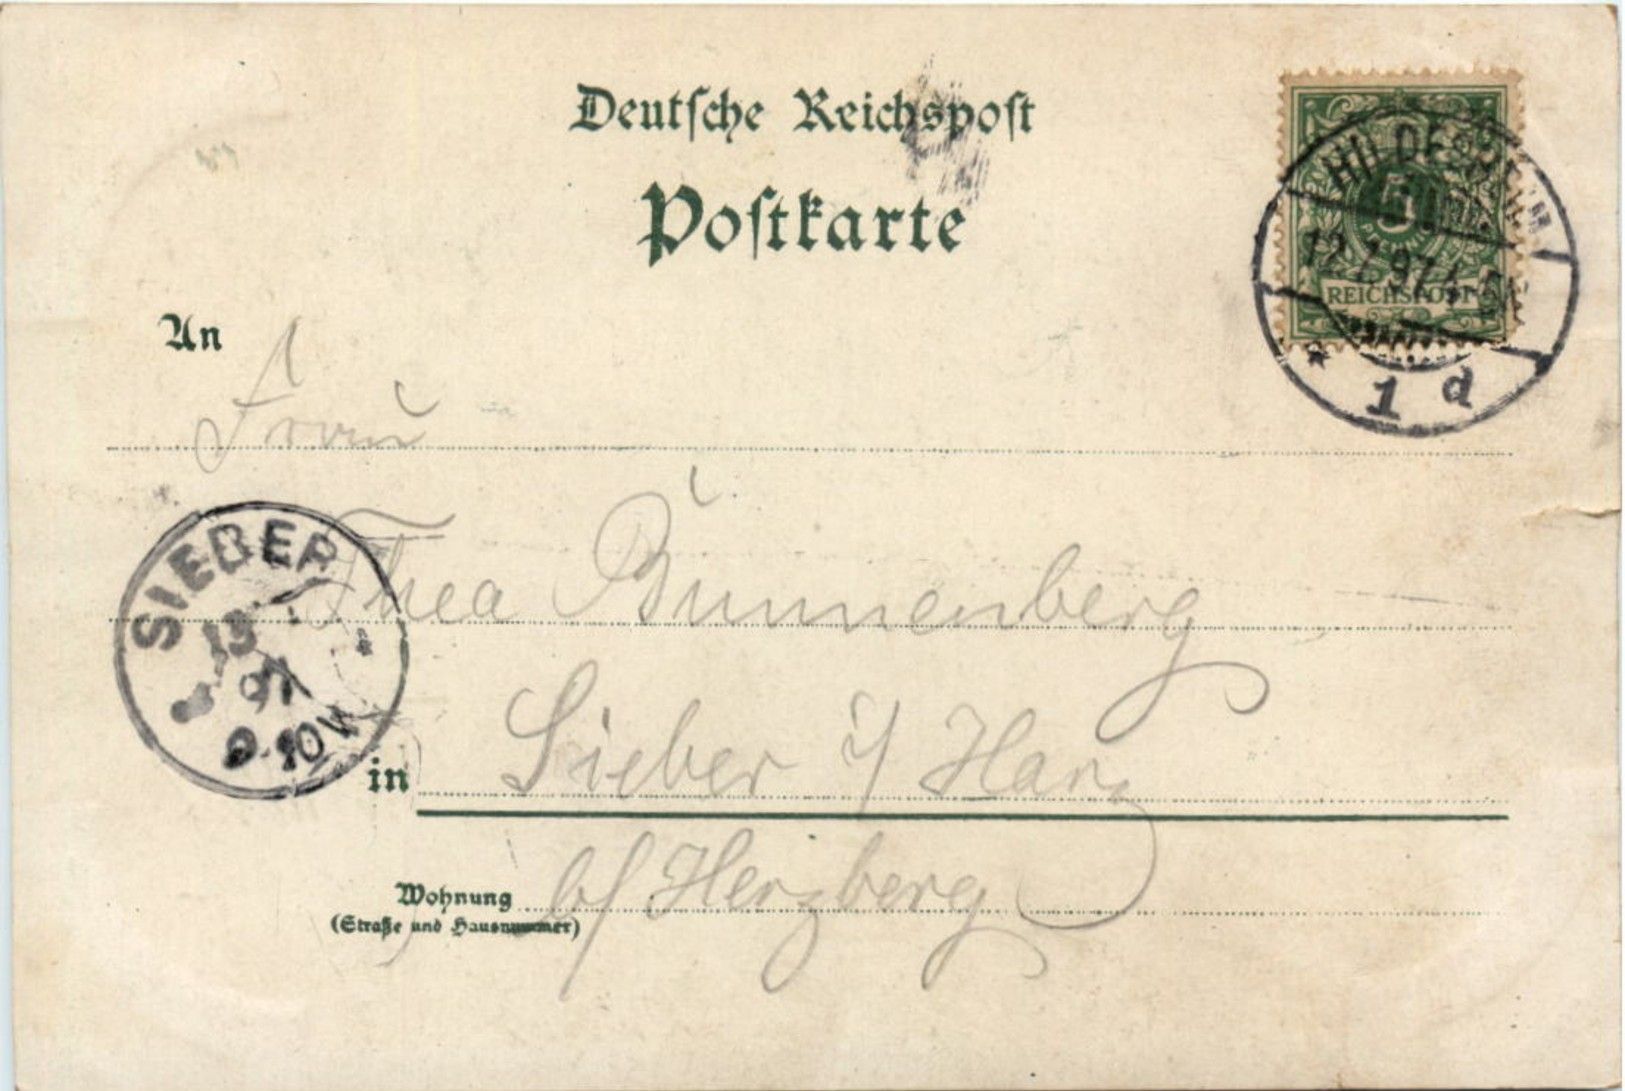 Deutsche Reichspost
Postkarte
HILDESHEIM
5
PFENNIG
12.7.97.4-5N
REICHSPOST
* 1 d
An
Frau
SIEBER
13
97
9-10V
*
Thea Bünnenberg
in Sieber i/ Harz
Wohnung b/ Herzberg
(Straße und Hausnummer)